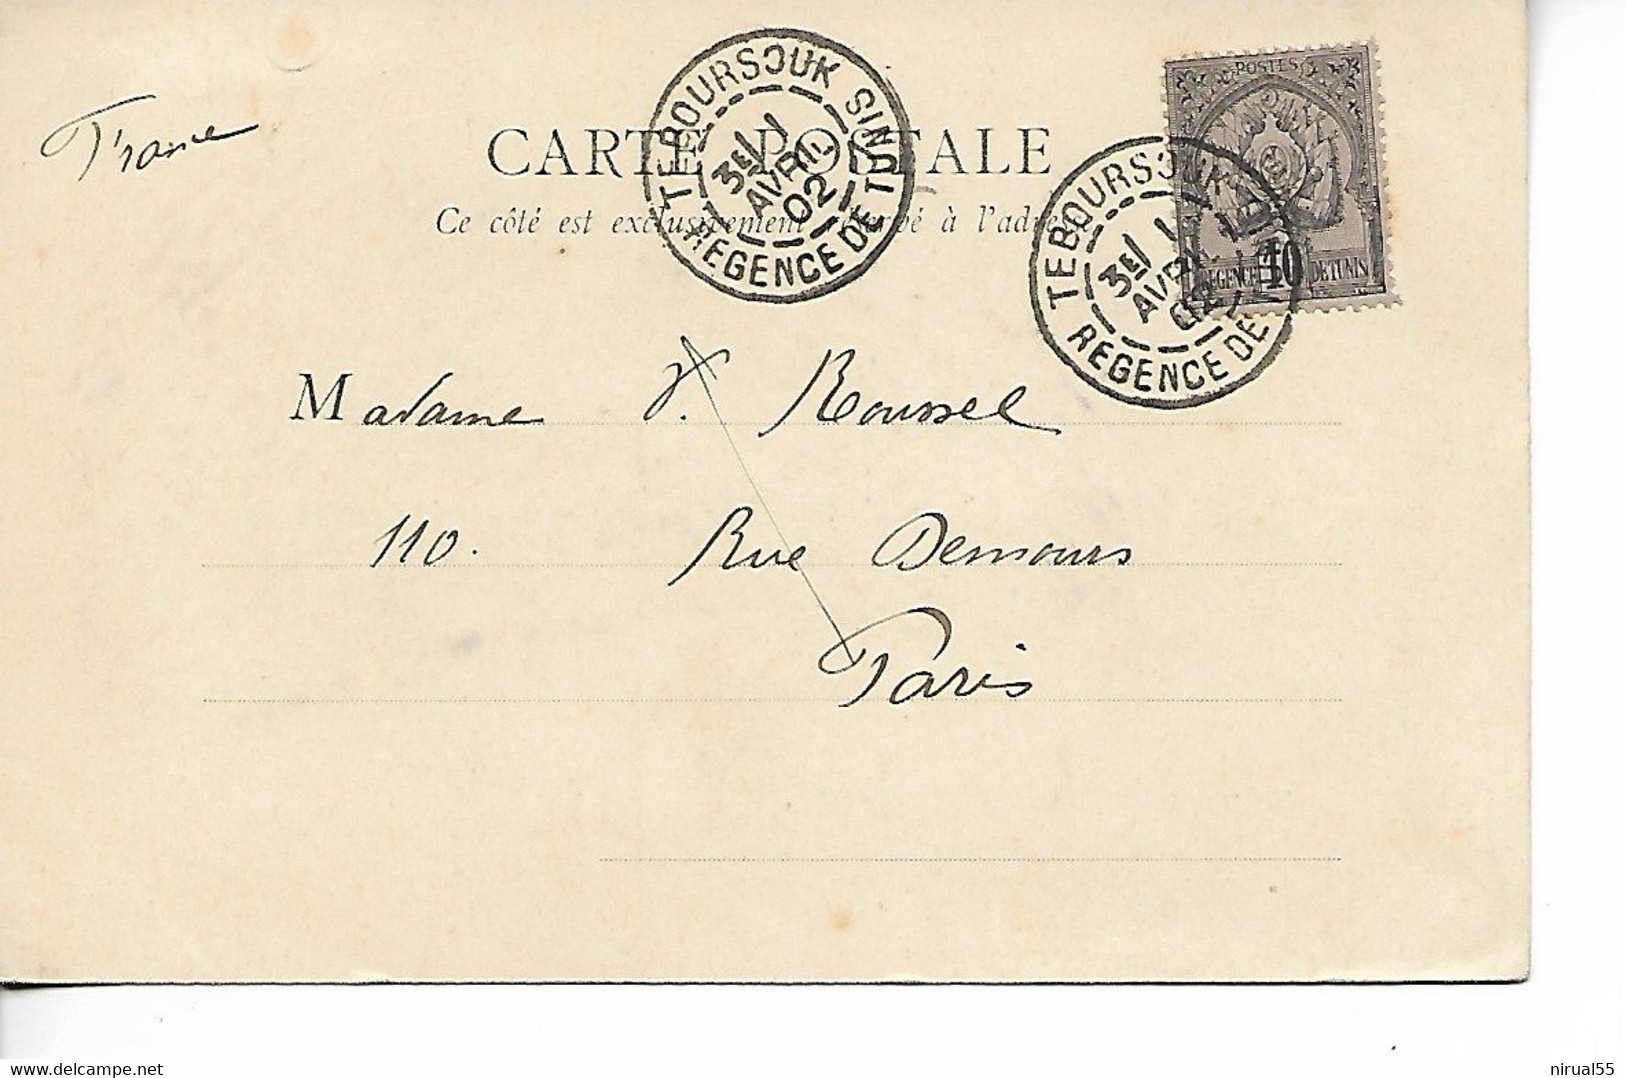 France
CARTE POSTALE
Ce côté est exclusivement réservé à l'adresse
TEBOURSOUK
3E/ 1
AVRIL
02
REGENCE DE TUNIS
TEBOURSOUK
3E/ 1
AVRIL
02
REGENCE DE
POSTES
REGENCE 10 DE TUNIS
Madame V. Roussel
110. Rue Demours
Paris
nirual55